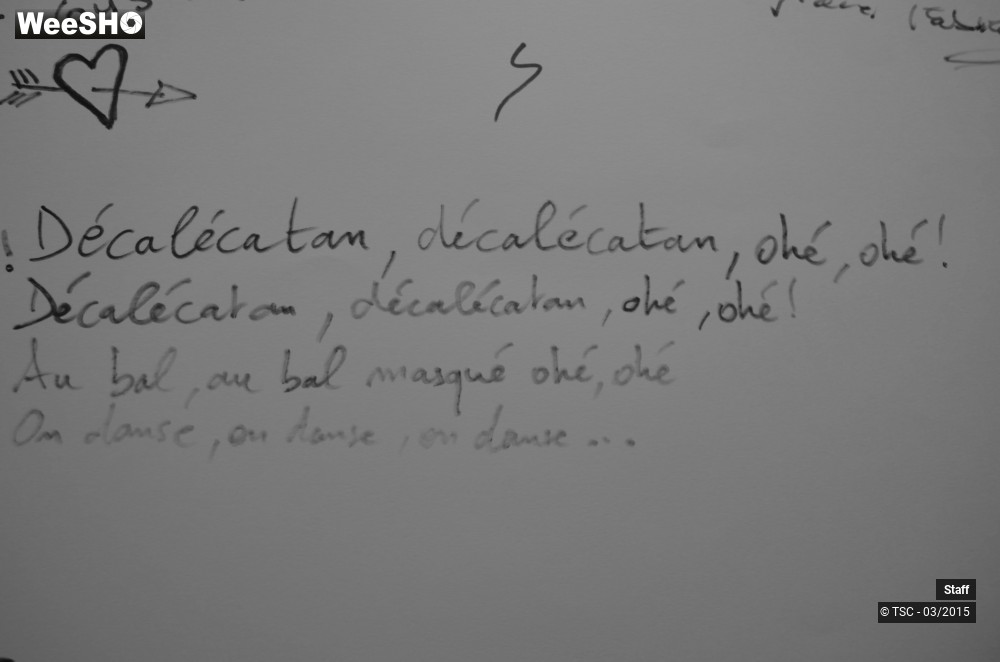 WeeSHO
! Décalécatan, décalécatan, ohé, ohé!
Décalécatan, décalécatan, ohé, ohé!
Au bal, au bal masqué ohé, ohé
On danse, on danse, on danse...
Staff
© TSC - 03/2015